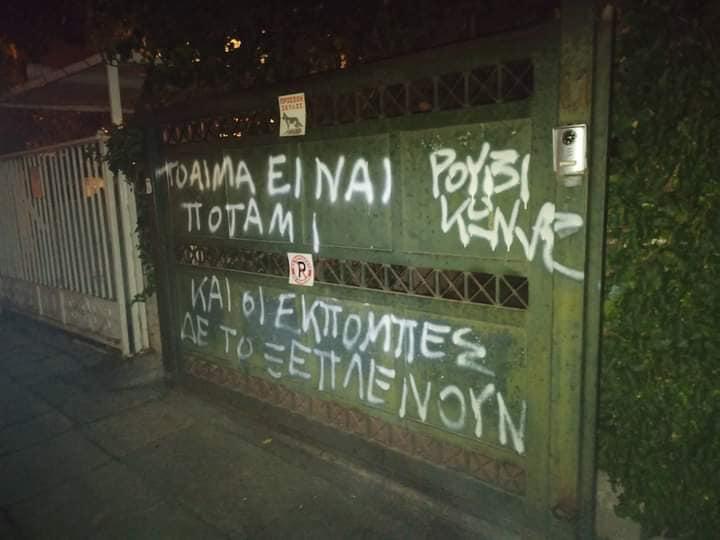 ΠΡΟΣΟΧΗ
ΣΚΥΛΟΣ
ΤΟ ΑΙΜΑ ΕΙΝΑΙ
ΠΟΤΑΜΙ
ΡΟΥΒΙ
ΚΩΝΝΣ
P
ΚΑΙ ΟΙ ΕΚΠΟΜΠΕΣ
ΔΕ ΤΟ ΞΕΠΛΕΝΟΥΝ